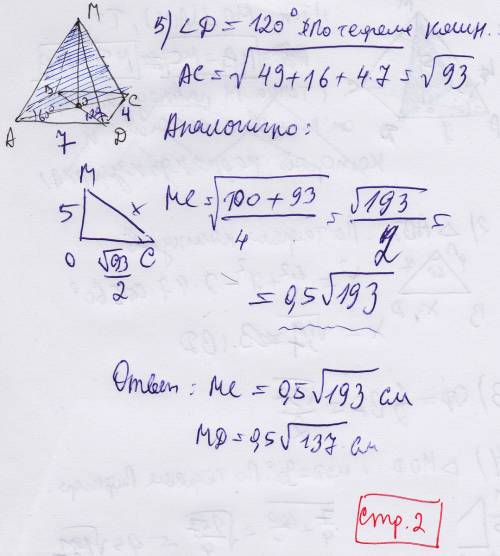 M
B
O
C
60°
120°
4
A
7
D
5) ∠D = 120° По теореме косин.:
AC = √(49+16+4·7) = √93
Аналогично:
M
5
x
O
√93/2
C
MC = √((100+93)/4) = √193/2 =
= 0,5√193
Ответ: MC = 0,5√193 см
MD = 0,5√137 см
стр. 2